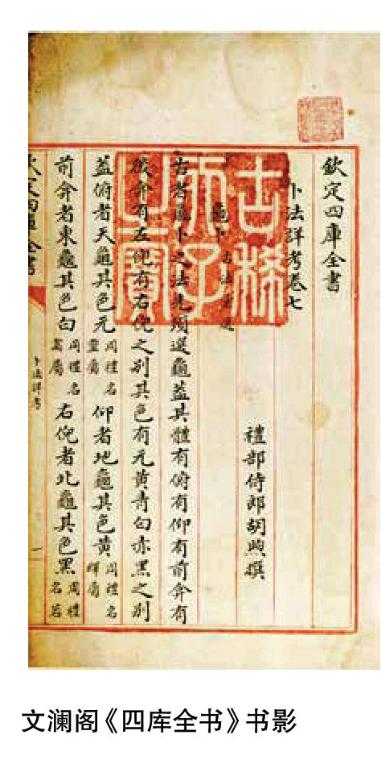 欽定四庫全書
卜法詳考卷七
禮部侍郎胡煦撰
龜卜
古者龜卜之法先須選龜蓋其體有俯有仰有前弇有
後弇有左倪有右倪之別其色有元黃青白赤黑之別
蓋俯者天龜其色元周禮名靈屬仰者地龜其色黃周禮名繹屬
前弇者東龜其色白周禮名屬右倪者北龜其色黑周禮名若
欽定四庫全書
卜法詳考
一
古稀天子之寶
文澜阁《四库全书》书影